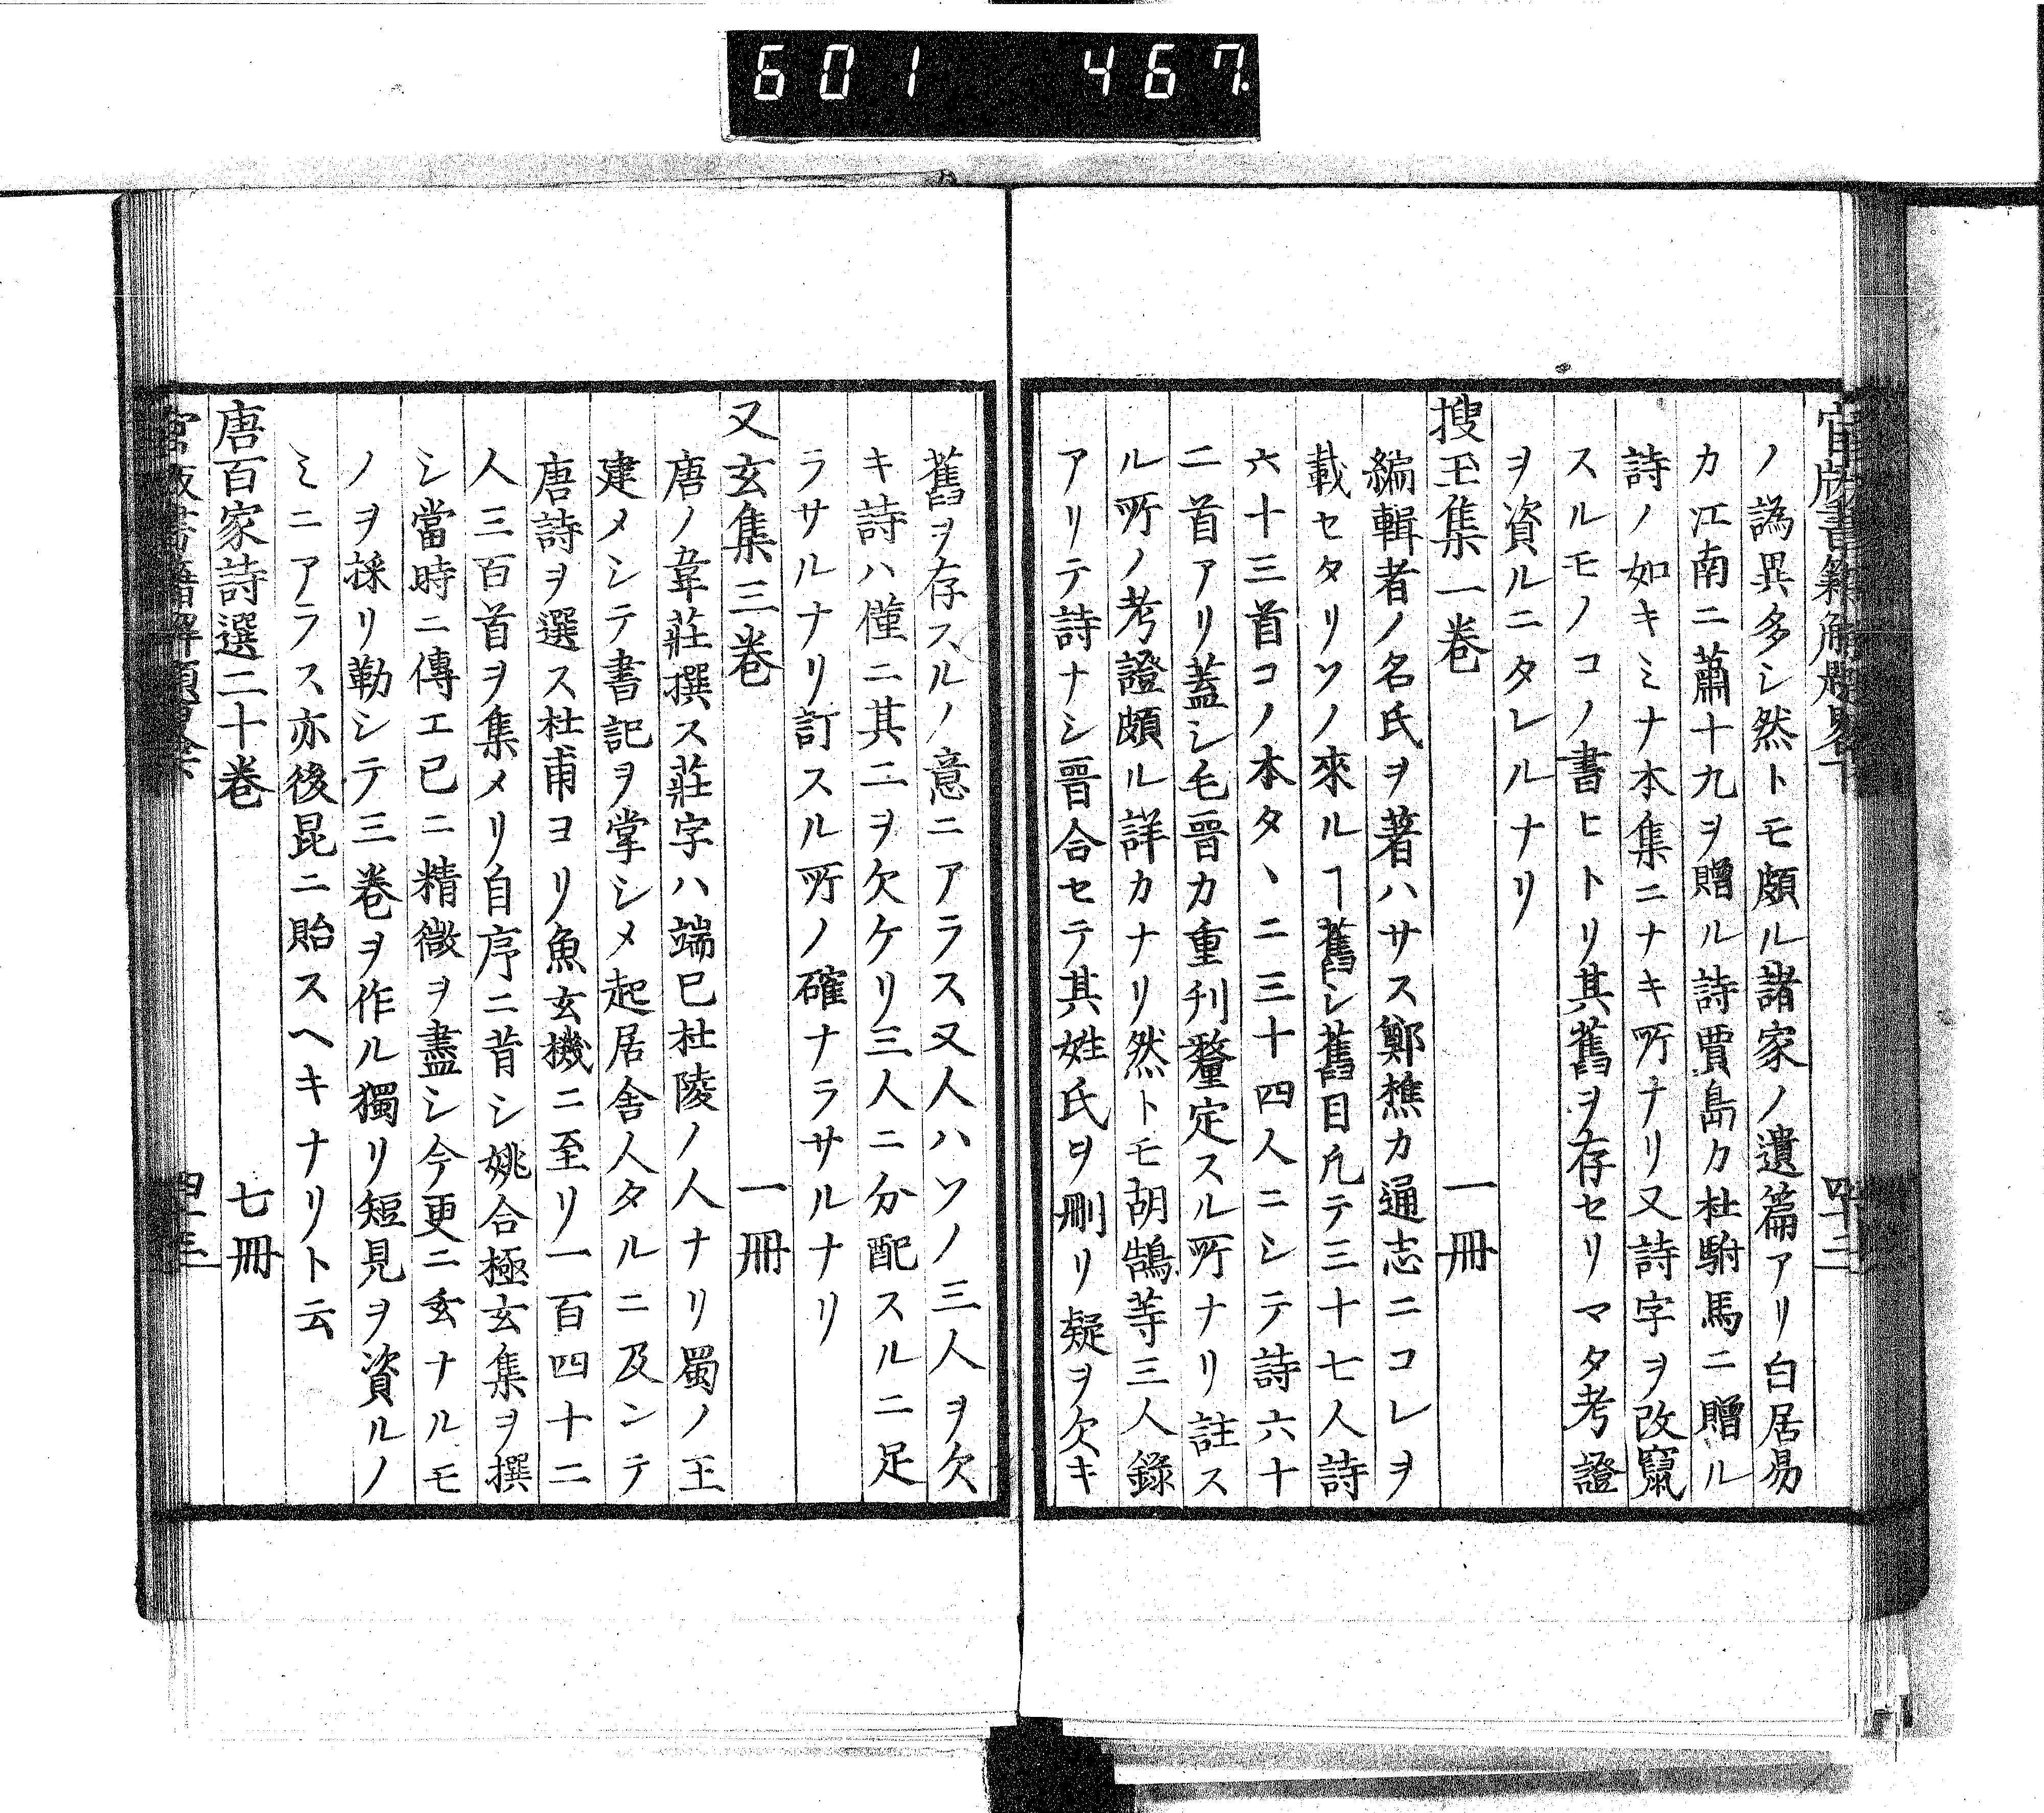 601 467
官版書籍解題畧下 四十三
ノ譌異多シ然トモ頗ル諸家ノ遺篇アリ白居易
カ江南ニ蕭十九ヲ贈ル詩賈島カ杜駙馬ニ贈ル
詩ノ如キミナ本集ニナキ所ナリ又詩字ヲ改竄
スルモノコノ書ヒトリ其舊ヲ存セリマタ考證
ヲ資ルニタレルナリ
搜玉集一巻 一冊
編輯者ノ名氏ヲ著ハサス鄭樵カ通志ニコレヲ
載セタリソノ來ルヿ舊シ舊目凢テ三十七人詩
六十三首コノ本タヽニ三十四人ニシテ詩六十
二首アリ蓋シ毛晋カ重刋釐定スル所ナリ註ス
ル所ノ考證頗ル詳カナリ然トモ胡鵠等三人錄
アリテ詩ナシ晋合セテ其姓氏ヲ刪リ疑ヲ欠キ
舊ヲ存スルノ意ニアラス又人ハソノ三人ヲ欠
キ詩ハ僅ニ其二ヲ欠ケリ三人ニ分配スルニ足
ラサルナリ訂スル所ノ確ナラサルナリ
又玄集三巻 一冊
唐ノ韋莊撰ス莊字ハ端已杜陵ノ人ナリ蜀ノ王
建メシテ書記ヲ掌シメ起居舎人タルニ及ンテ
唐詩ヲ選ス杜甫ヨリ魚玄機ニ至リ一百四十二
人三百首ヲ集メリ自序ニ昔シ姚合極玄集ヲ撰
シ當時ニ傳エ已ニ精微ヲ盡シ今更ニ玄ナルモ
ノヲ採リ勒シテ三巻ヲ作ル獨リ短見ヲ資ルノ
ミニアラス亦後昆ニ貽スヘキナリト云
唐百家詩選二十巻 七冊
官版書籍解題畧 四十三